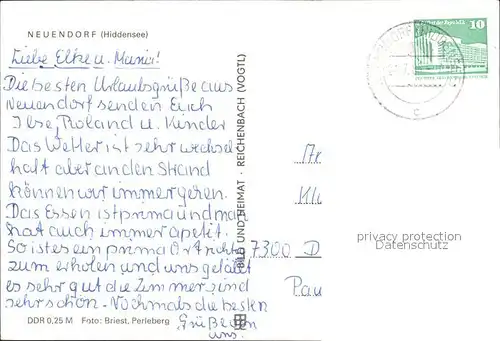 NEUENDORF (Hiddensee)
Liebe Elke u. Mario!
Die besten Urlaubsgrüße aus
Neuendorf senden Euch
Ilse, Roland u. Kinder
Das Wetter ist sehr wechsel
haft aber an den Strand
können wir immer gehen.
Das Essen ist prima und man
hat auch immer apetit.
So ist es ein prima Ort richtig
zum erholen und uns gefällt
es sehr gut die Zimmer sind
sehr schön. Nochmals die besten
Grüße von
uns.
DDR 0,25 M Foto: Briest, Perleberg
BILD UND HEIMAT · REICHENBACH (VOGTL)
10
7300 D
privacy protection
Datenschutz